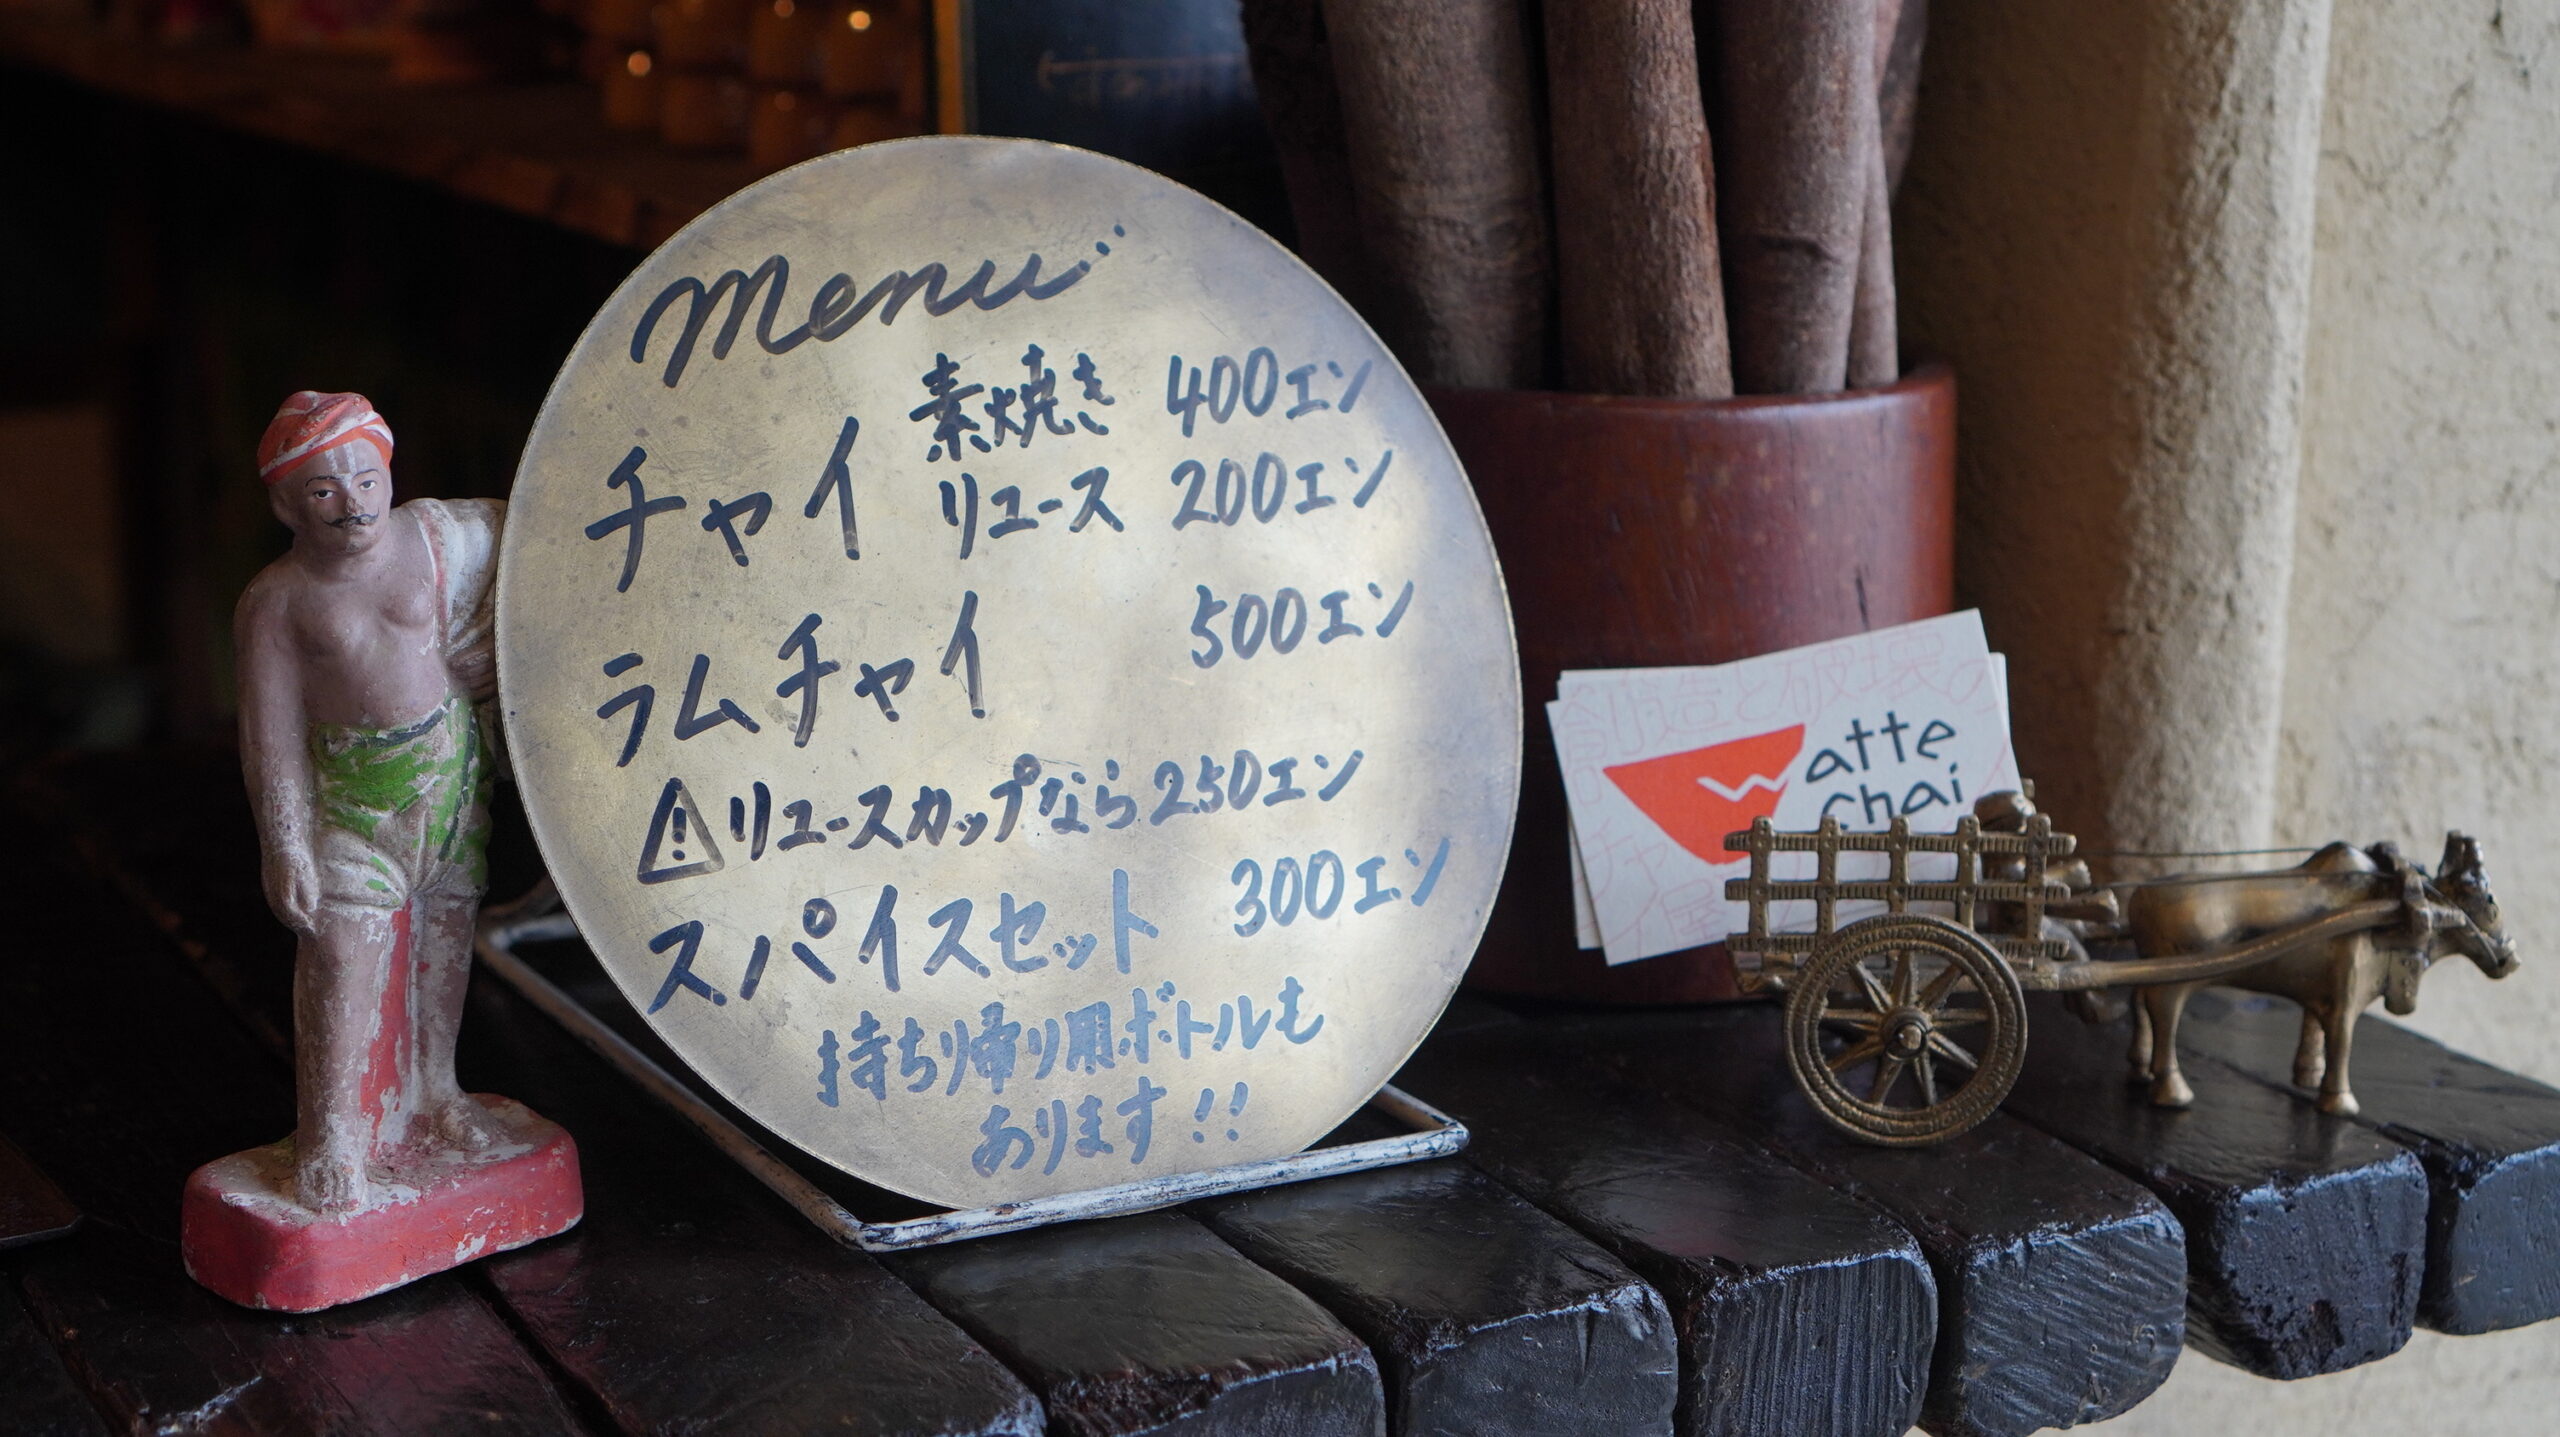 menu
素焼き 400エン
チャイ
リユース 200エン
ラムチャイ 500エン
リユースカップなら250エン
スパイスセット 300エン
持ち帰り用ボトルも
あります!!
創造と破壊の
Watte
chai
チャイ屋